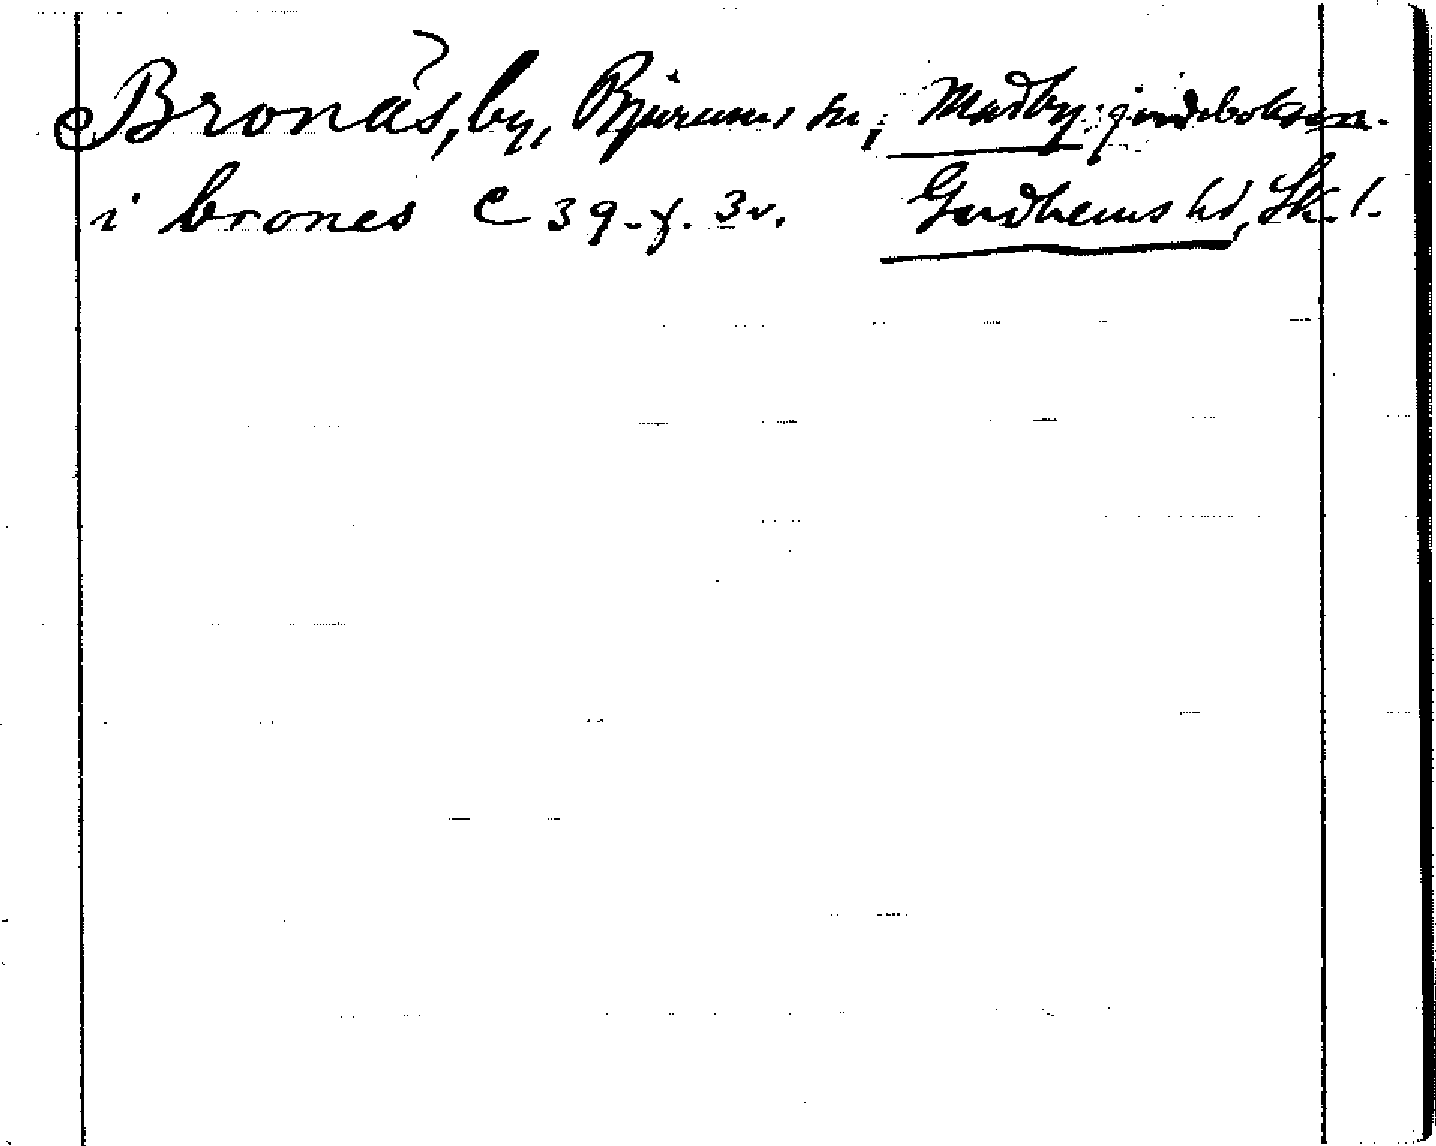 Bronäs, by, Bjurums sn, Madby jordeboksen.
i brones C 39. f. 3v. Gudhems hd, Sk. l.